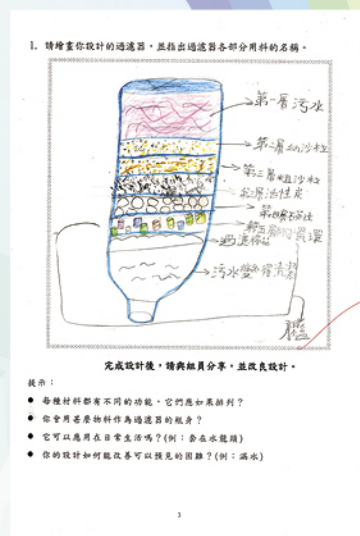 1. 請繪畫你設計的過濾器，並指出過濾器各部分用料的名稱。
第一層污水
第二層細沙粒
第三層粗沙粒
活性炭
第五層
過濾棉
污水變
完成設計後，請與組員分享，並改良設計。
提示：
● 每種材料都有不同的功能，它們應如果排列？
● 你會用甚麼物料作為過濾器的瓶身？
● 它可以應用在日常生活嗎？(例：套在水龍頭)
● 你的設計如何能改善可以預見的困難？(例：漏水)
3